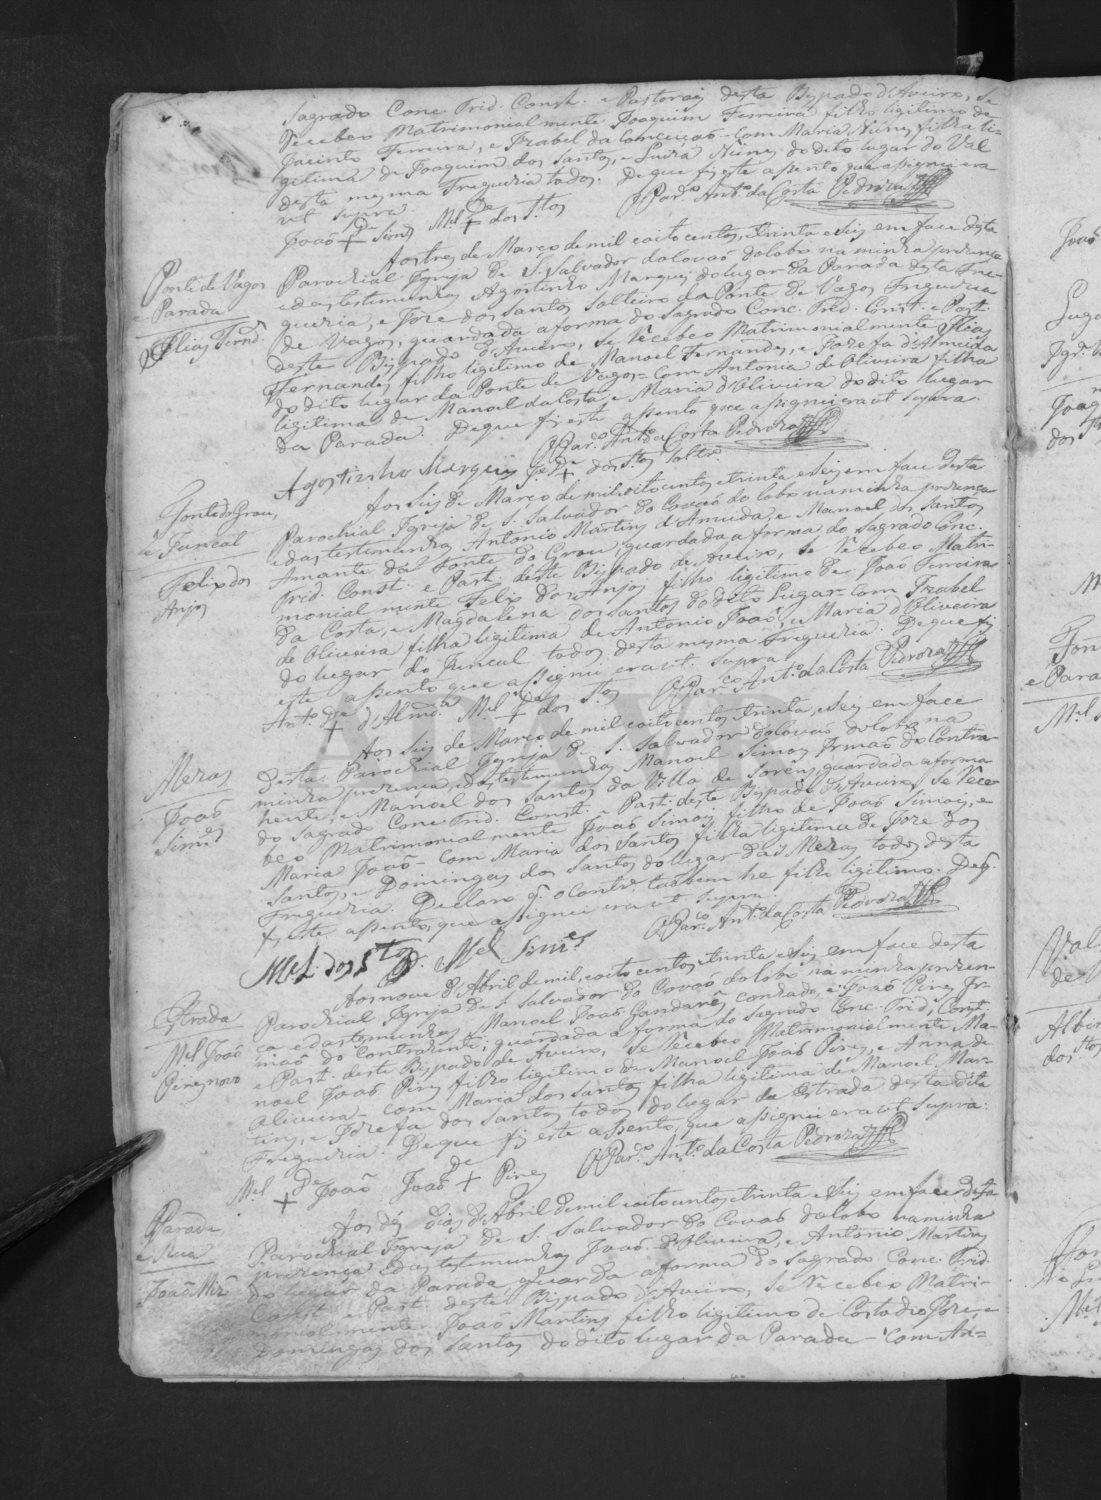 Sagrado Conc. Trid. Const. e Pastoraes desta Bispado d'Aveiro, se
Recebeo Matrimonialmente Joaquim Ferreira filho legitimo de
Jacinto Ferreira, e Izabel da Conceição - Com Maria Nunes filha le=
gitima de Joaquim dos Santos, e Luiza Nunes do dito lugar do Val
desta mesma Freguezia todos. De que fiz este assento que assignei era
ut supra.
O Par.co Ant.o da Costa Pedroza
João + Simõ M.el + dos S.tos
Ponte de Vagos
e Parada
Elias Fernd.
Aos tres de Março de mil e oito centos, e trinta e seis em face desta
Parochial Igreja de S. Salvador do Covaõ do Lobo na minha prezença
e das testemunhas Agostinho Marques do lugar da Parada desta Fre=
guezia, e Joze dos Santos Solteiro da Ponte de Vagos Freguezia
de Vagos, guardada a forma do Sagrado Conc. Trid. Const. e Past.
deste Bispado d'Aveiro, se Recebeo Matrimonialmente Elias
Fernandes filho legitimo de Manoel Fernandes, e Jozefa d'Almeida
do dito lugar da Ponte de Vagos - Com Antonia de Oliveira filha
legitima de Manoel da Costa, e Maria d'Oliveira do dito lugar
da Parada. De que fiz este assento que assignei era ut supra.
O Par.co Ant.o da Costa Pedroza
Agostinho Marques Je. + dos S.tos Soltr.o
Fonte do Grau,
e Funcal
Felix dos
Anjos
Aos seis de Março de mil e oito centos e trinta e seis em face desta
Parochial Igreja de S. Salvador do Covaõ do Lobo na minha prezença
e das testemunhas Antonio Martins d'Almeida, e Manoel dos Santos
Amante da Fonte do Grau, guardada a forma do Sagrado Conc.
Trid. Const. e Past. deste Bispado de Aveiro, se Recebeo Matri=
monialmente Felix dos Anjos filho legitimo de João Ferreira
da Costa, e Magdalena dos Santos do dito Lugar - Com Izabel
de Oliveira filha legitima de Antonio João, e Maria d'Oliveira
do lugar do Juncal todos desta mesma Freguezia. De que fiz
este assento que assignei era ut supra.
O Par.co Ant.o da Costa Pedroza
Ant.o + d'Almd.a M.el + dos S.tos
Mezas
João
Simões
Aos seis de Março de mil e oito centos, e trinta, e seis em face
desta Parochial Igreja de S. Salvador do Covaõ do Lobo na
minha prezença, e das testemunhas Manoel Simões Irmaõ do Contra=
hente, e Manoel dos Santos da Villa de Sorens guardada a forma
do Sagrado Conc. Trid. Const. e Past. deste Bispado d'Aveiro, se Rece=
beo Matrimonialmente João Simões filho de João Simões, e
Maria João - Com Maria dos Santos filha legitima de Joze dos
Santos, e Domingas dos Santos do lugar das Mezas todos desta
Freguezia. Declaro q. o Contr.e tambem he filho legitimo. De q.
fiz este assento, que assignei era ut supra.
O Par.co Ant.o da Costa Pedroza
M.el dos S.tos M.el Simões
Estrada
M.el João
Pires novo
Aos nove d'Abril de mil, e oito centos, e trinta e seis em face desta
Parochial Igreja de S. Salvador do Covaõ do Lobo na minha prezen=
ça e das testemunhas Manoel João Gandarês cazado, e João Pires Ir=
maõ do Contrahente, guardada a forma do Sagrado Conc. Trid. Const.
e Past. deste Bispado de Aveiro, se Recebeo Matrimonialmente Ma=
noel João Pires filho legitimo de Manoel João Pires, e Anna de
Oliveira - Com Maria dos Santos filha legitima de Manoel Mar=
tins, e Jozefa dos Santos todos do lugar da Estrada desta dita
Freguezia. De que fiz este assento, que assignei era ut supra.
O Par.co Ant.o da Costa Pedroza
M.el + João João + Pires
Parada
e Rua
João Miz
Aos dez dias d'Abril de mil e oito centos e trinta e seis em face desta
Parochial Igreja de S. Salvador do Covaõ do Lobo na minha
prezença e das testemunhas João d'Oliveira, e Antonio Martins
do lugar da Parada guarda a forma do Sagrado Conc. Trid.
Const. e Past. deste Bispado d'Aveiro, se Recebeo Matri=
monialmente João Martins filho legitimo de Custodio Joze e
Domingas dos Santos do dito lugar da Parada - Com An=